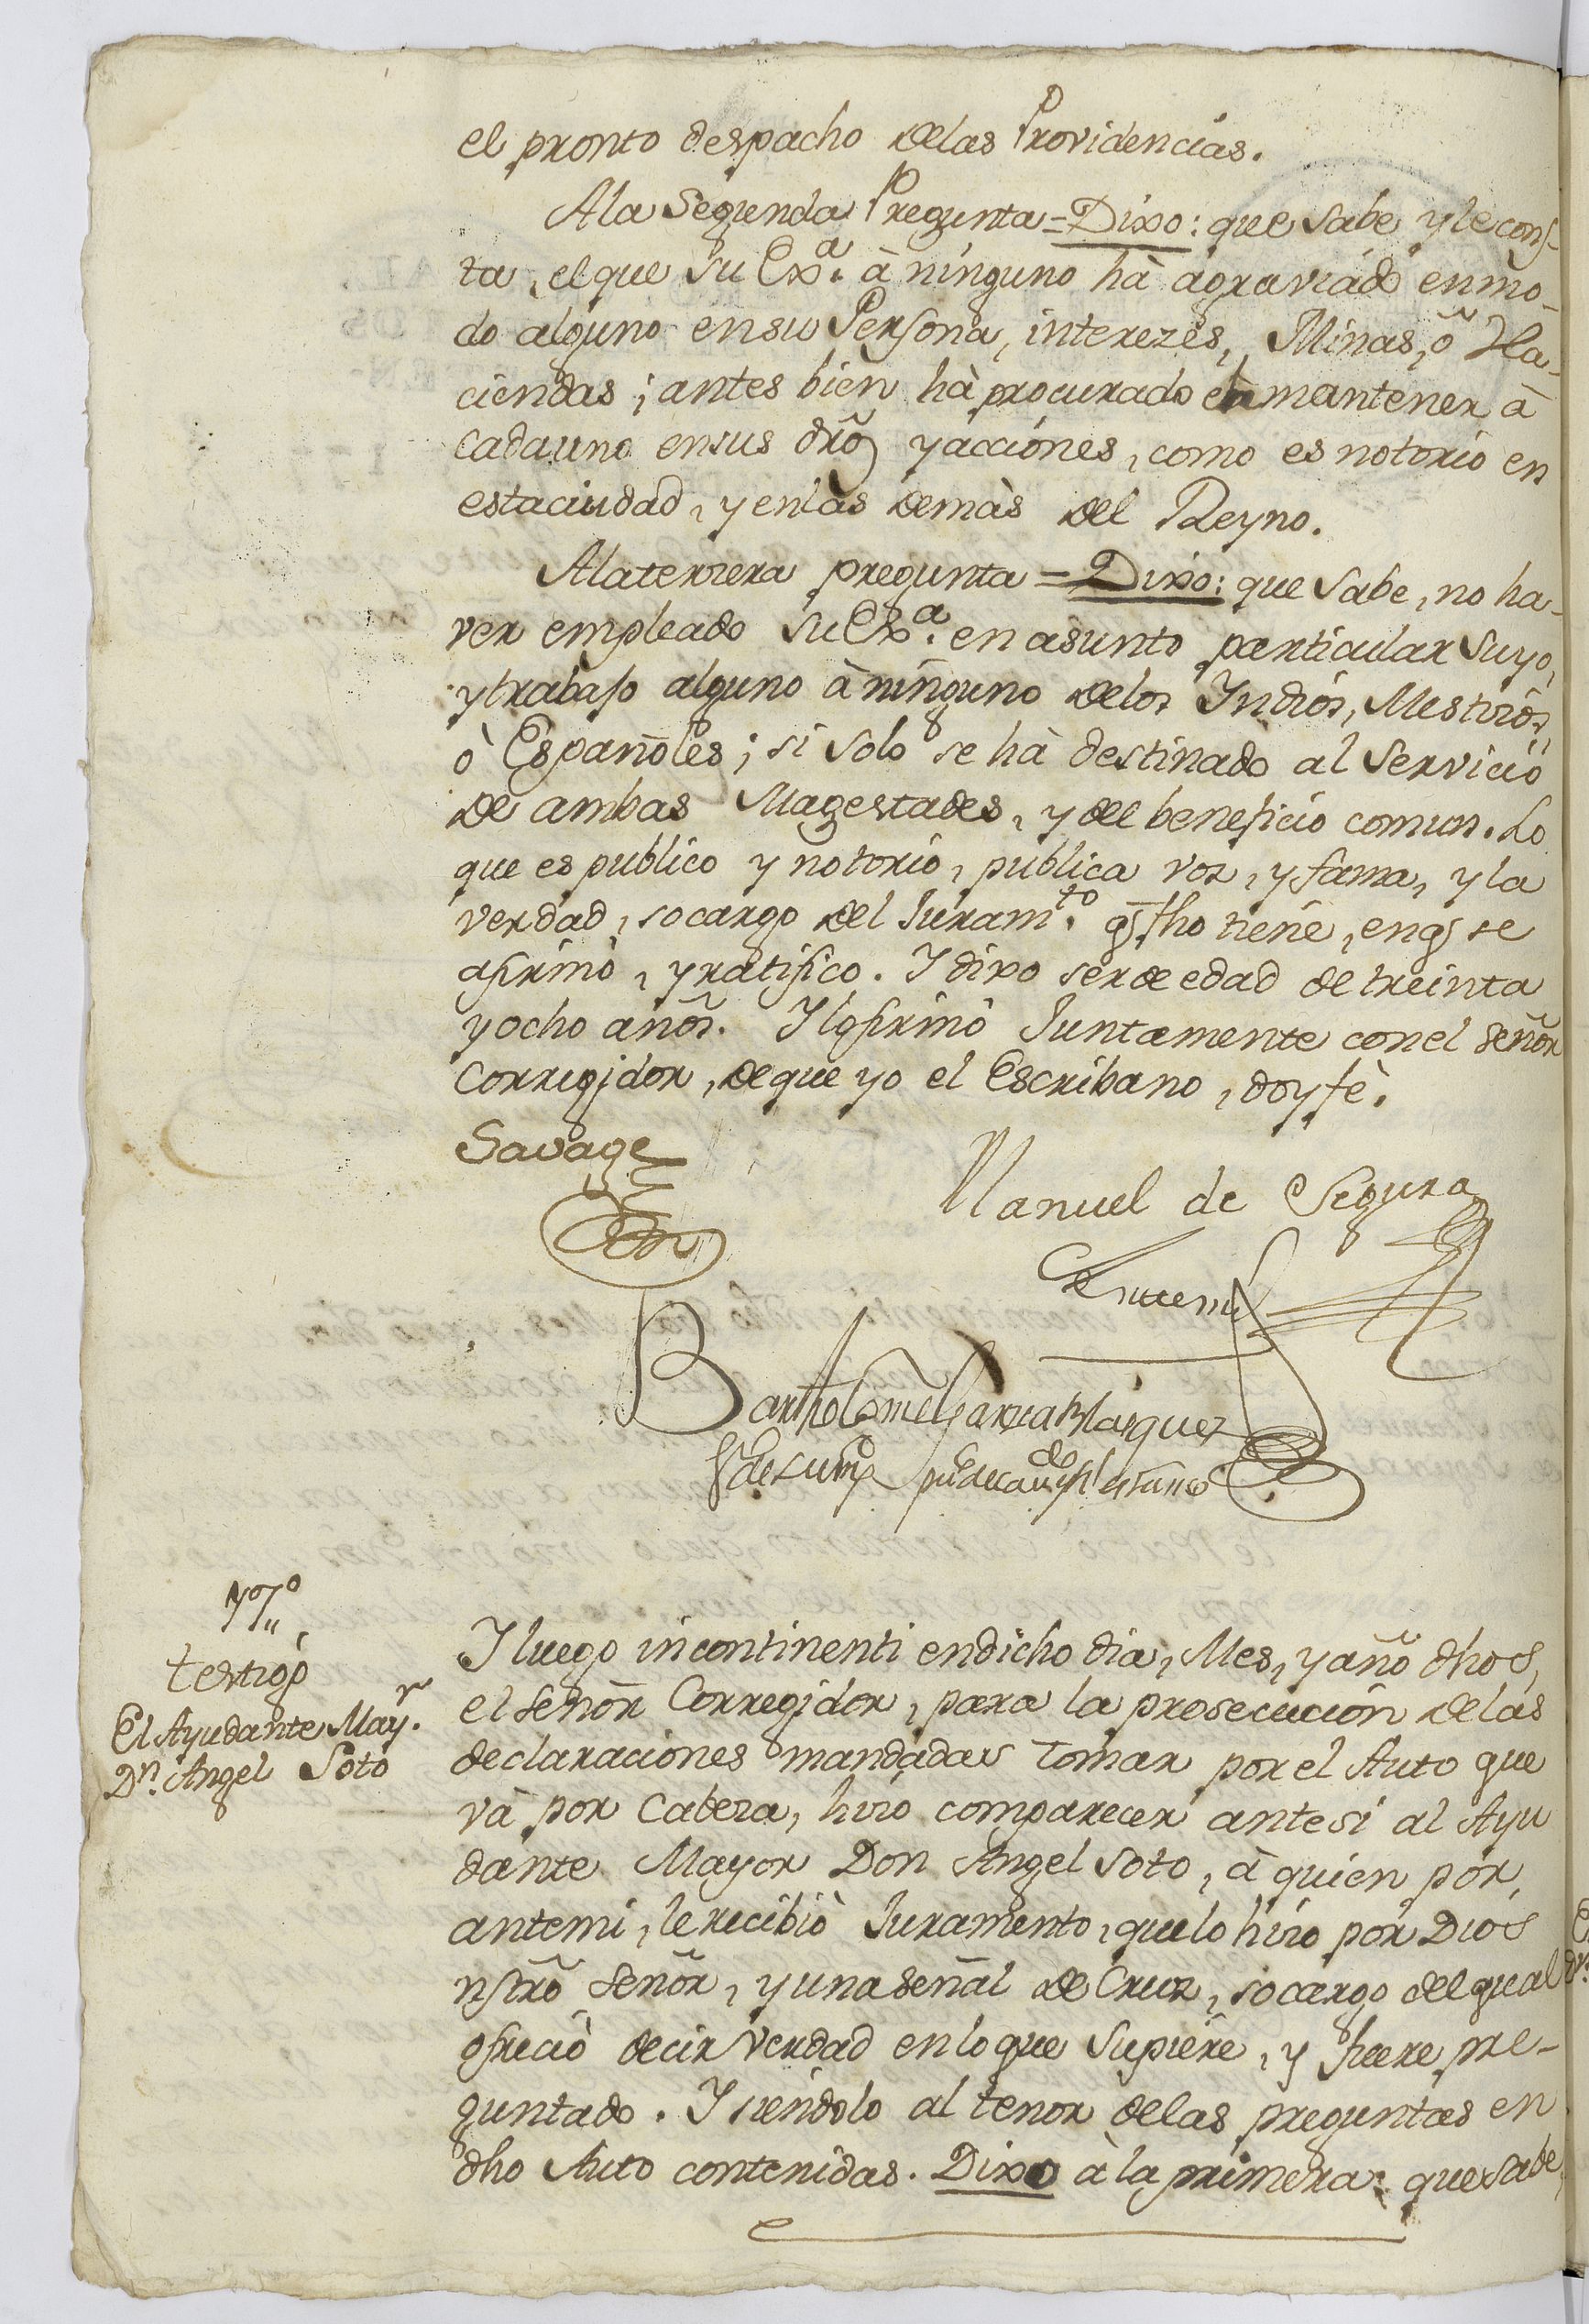 el pronto despacho delas Providencias.
Ala Segunda Pregunta = Dixo: que sabe y le cons-
ta, el que Su Exª. à ninguno hà agraviado en mo-
do alguno en su Persona, interezes, Minas, ò Ha-
ciendas; antes bien hà procurado en mantener à
cada uno ensus dr̃os y acciones, como es notorio en
esta ciudad, y enlas demàs del Reyno.
Ala terzera pregunta = Dixo: que sabe, no ha-
ver empleado Su Exª. en asunto particular suyo,
y trabajo alguno à ninguno delos Indios, Mestizos,
ò Españoles; si solo se hà destinado al Servicio
de ambas Magestades, y del beneficio comun. Lo
que es publico y notorio, publica voz, y fama, y la
verdad, so cargo del Juramto. q̃ fho tiene, en q̃ se
afirmò, y ratificò. I dixo ser de edad de treinta
y ocho años. I lo firmò Juntamente con el señor
Corregidor, de que yo el Escribano, doy fè.
Savage
Manuel de Segura
Ante mi
Bartholome Garzia Blasquez
Sno de su Mgd
7º,,
testigo
El Ayudante Mayr.
Dn. Angel Soto
I luego incontinenti en dicho dia, Mes, y año dhos,
el señor Corregidor, para la prosecucion delas
declaraciones mandadas tomar por el Auto que
và por Cabeza, hizo comparecer ante si al Ayu
dante Mayor Don Angel Soto, à quien por,
antemi, le recibiò Juramento, que lo hizo por Dios
nṙo señor, y una señal de Cruz, so cargo del qual
ofreciò decir verdad en lo que supiere, y fuere pre-
guntado. I siendolo al tenor delas preguntas en
dho Auto contenidas. Dixo à la primera: que sabe,